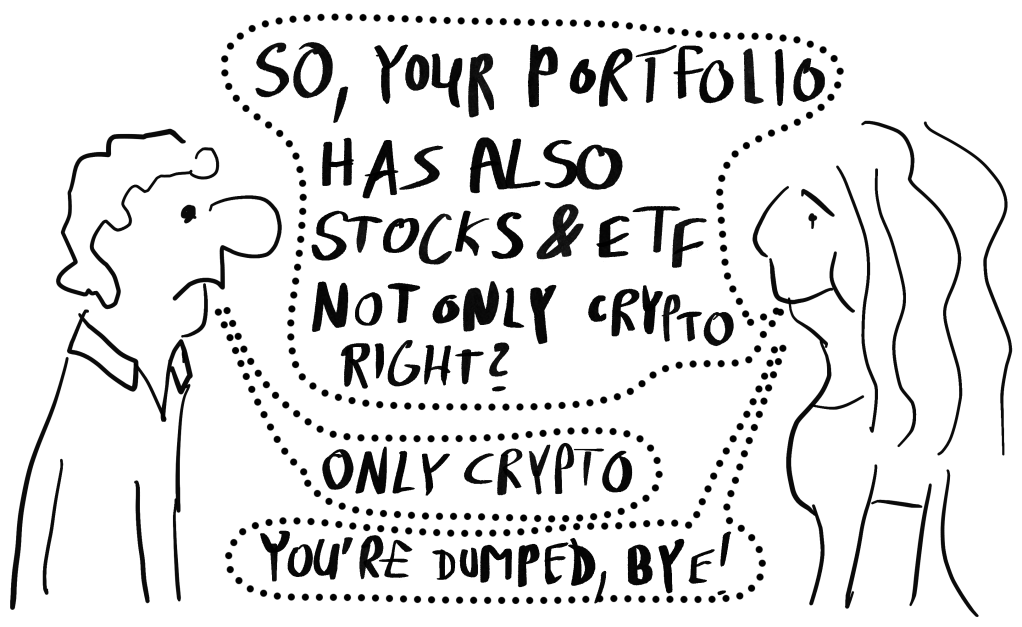 SO, YOUR PORTFOLIO
HAS ALSO
STOCKS & ETF
NOT ONLY CRYPTO
RIGHT?
ONLY CRYPTO
YOU'RE DUMPED, BYE!